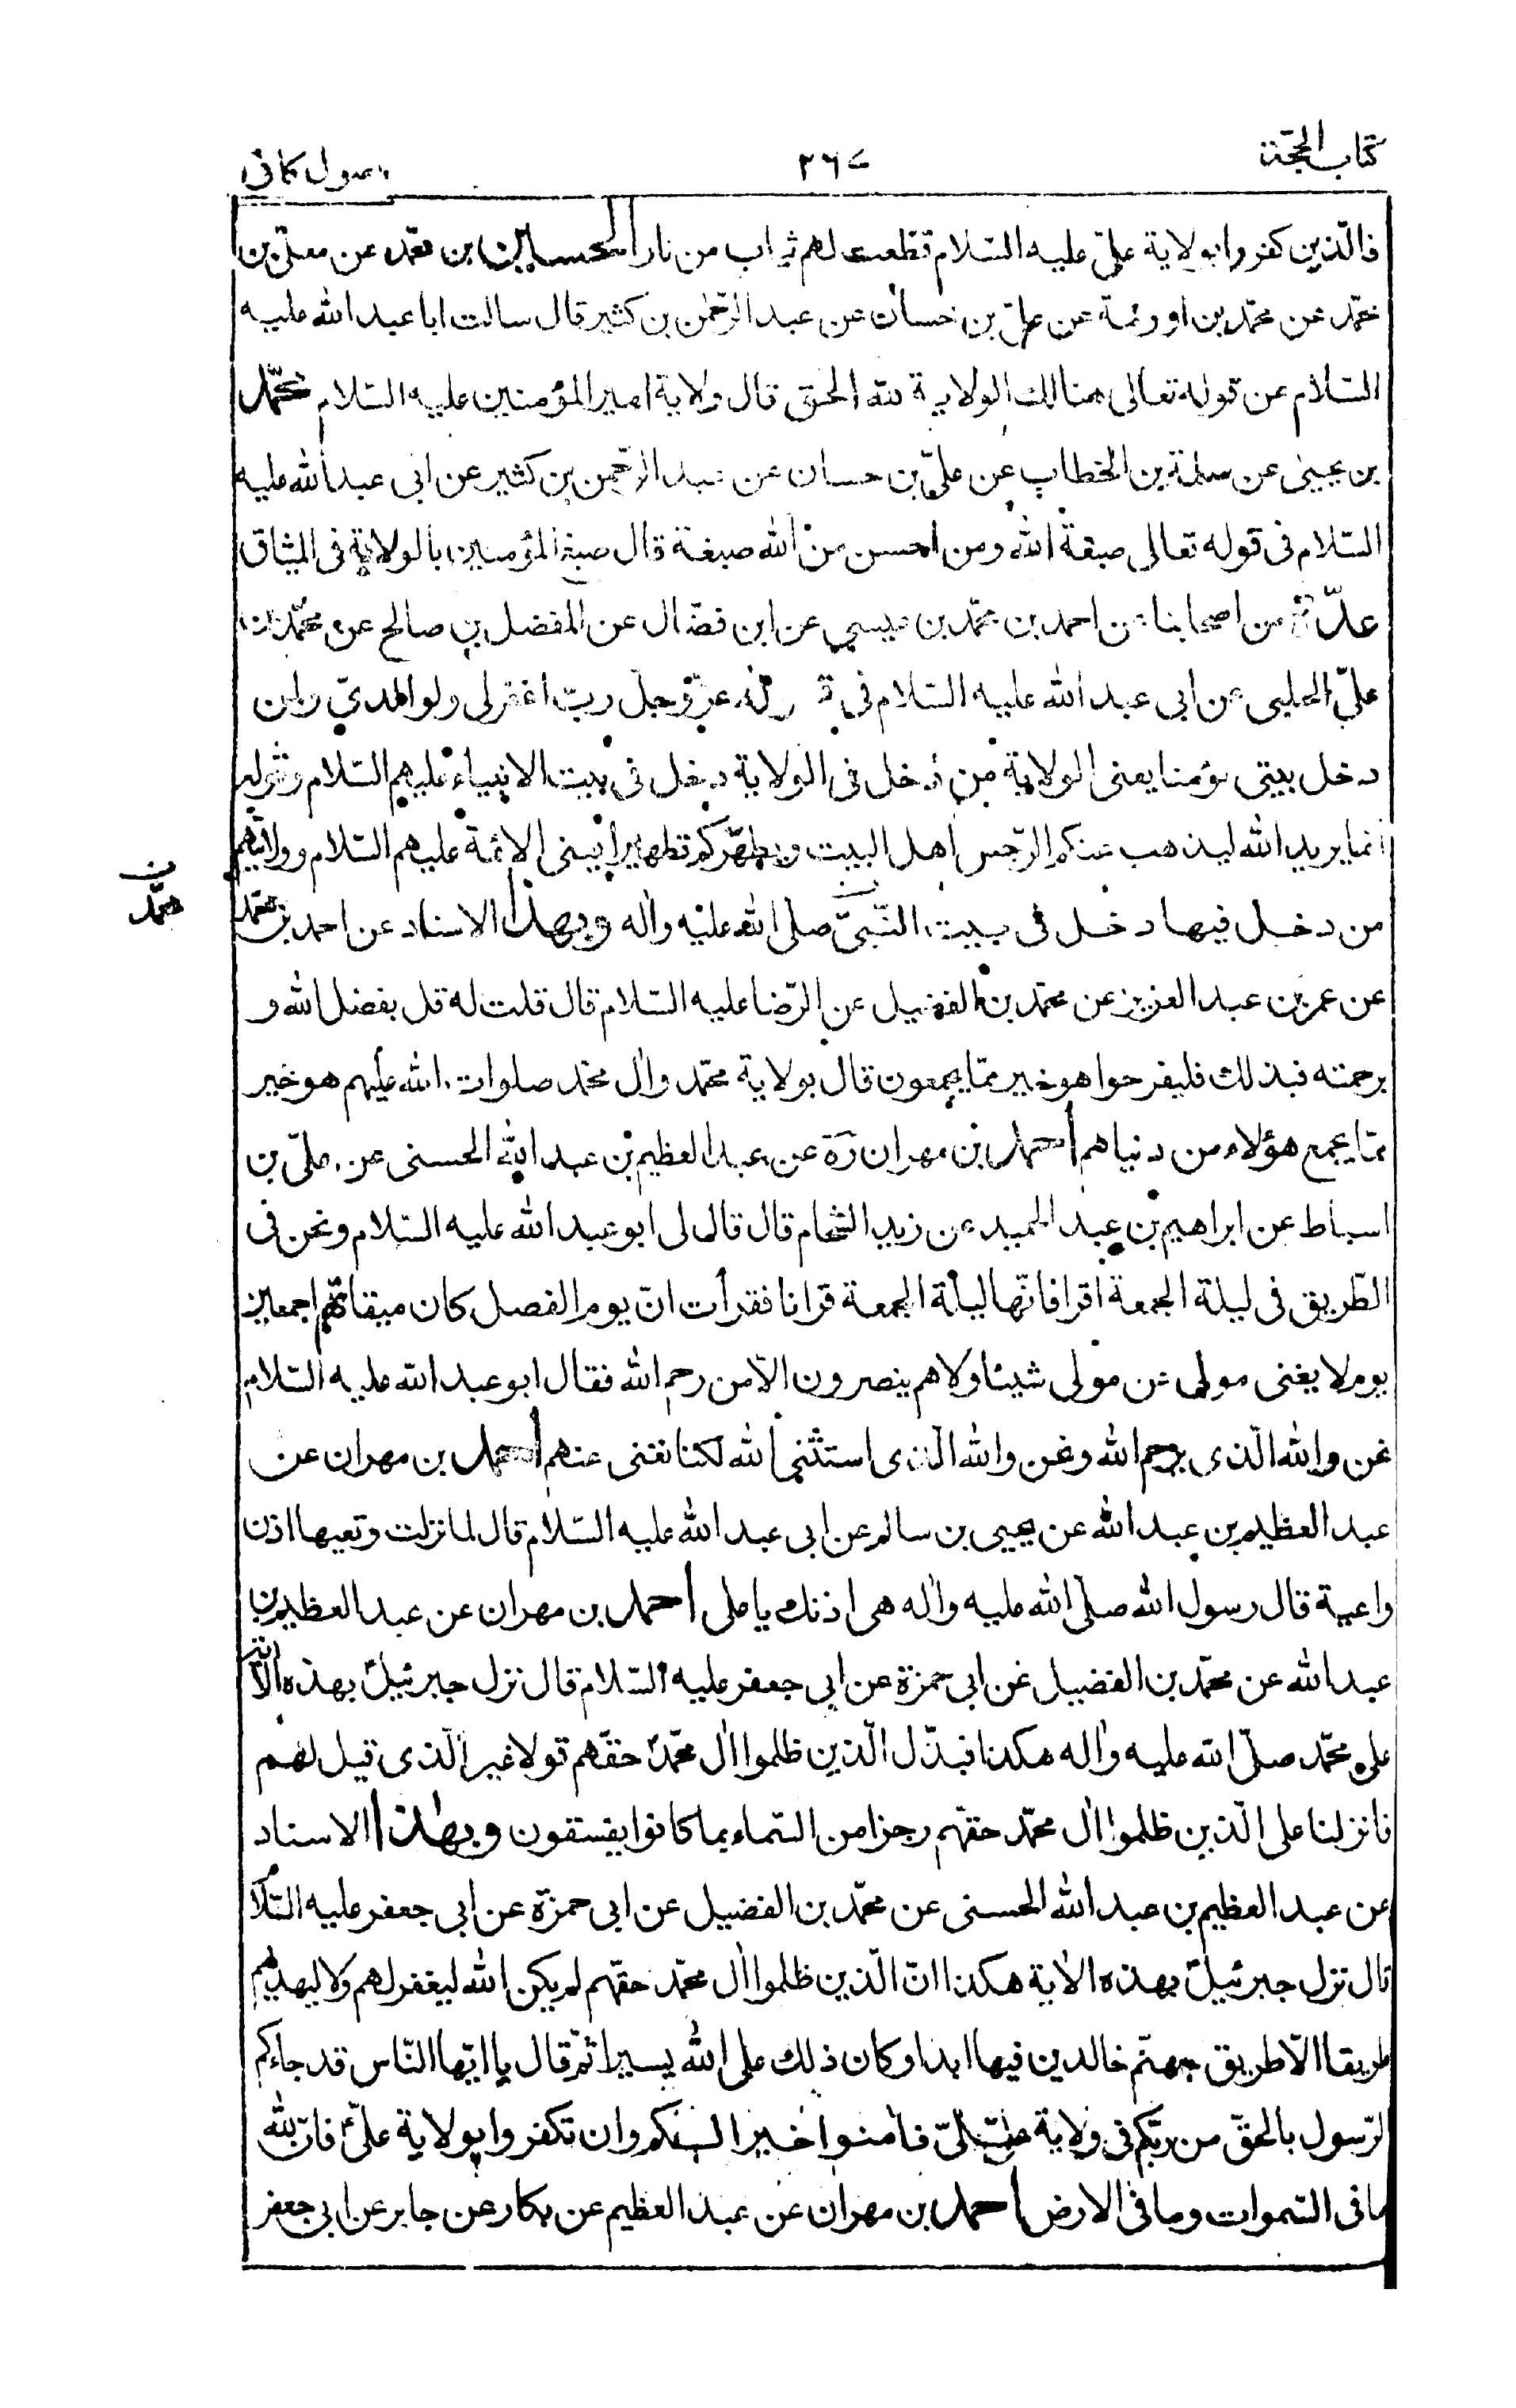 كتاب الحجة
٢٦٧
اصول كافى
فالّذين كفروا بولاية علىّ عليه السّلام قطّعت لهم ثياب من نار الحسين بن محمد عن معلّى بن
محمّد عن محمّد بن اورمة عن علىّ بن حسان عن عبد الرّحمٰن بن كثير قال سالت ابا عبد الله عليه
السّلام عن قوله تعالى هنالك الولاية لله الحق قال ولاية امير المؤمنين عليه السّلام محمّد
بن يحيى عن سلمة بن الخطاب عن علىّ بن حسان عن عبد الرّحمن بن كثير عن ابى عبد الله عليه
السّلام فى قوله تعالى صبغة الله ومن احسن من الله صبغة قال صبغ المؤمنين بالولاية فى الميثاق
عدّة من اصحابنا عن احمد بن محمّد بن عيسى عن ابن فضّال عن المفضل بن صالح عن محمّد بن
علىّ الحلبى عن ابى عبد الله عليه السّلام فى قوله عزّ وجلّ ربّ اغفر لى ولوالدىّ ولمن
دخل بيتى مؤمنا يعنى الولاية من دخل فى الولاية دخل فى بيت الانبياء عليهم السّلام وقوله
انما يريد الله ليذهب عنكم الرّجس اهل البيت ويطهّركم تطهيرا يعنى الائمة عليهم السّلام وولايتهم
من دخل فيها دخل فى بيت النّبىّ صلى الله عليه واٰله وبهذا الاسناد عن احمد بن محمّد
بن
محمّد
عن عمر بن عبد العزيز عن محمّد بن الفضيل عن الرّضا عليه السّلام قال قلت له قل بفضل الله و
برحمته فبذلك فليفرحوا هو خير ممّا يجمعون قال بولاية محمّد واٰل محمّد صلوات الله عليهم هو خير
ممّا يجمع هؤلاء من دنياهم احمد بن مهران رة عن عبد العظيم بن عبد الله الحسنى عن علىّ بن
اسباط عن ابراهيم بن عبد الحميد عن زيد الشّحام قال قال لى ابو عبد الله عليه السّلام ونحن فى
الطّريق فى ليلة الجمعة اقرا فانّها ليلة الجمعة قرانا فقرأت انّ يوم الفصل كان ميقاتهم اجمعين
يوم لا يغنى مولى عن مولى شيئا ولا هم ينصرون الّا من رحم الله فقال ابو عبد الله عليه السّلام
نحن والله الّذى يرحم الله ونحن والله الّذى استثنى الله لكنا نغنى عنهم احمد بن مهران عن
عبد العظيم بن عبد الله عن يحيى بن سالم عن ابى عبد الله عليه السّلام قال لما نزلت وتعيها اذن
واعية قال رسول الله صلّى الله عليه واٰله هى اذنك يا على احمد بن مهران عن عبد العظيم بن
عبد الله عن محمّد بن الفضيل عن ابى حمزة عن ابى جعفر عليه السّلام قال نزل جبرئيل ع بهذه الاٰية
على محمّد صلّى الله عليه واٰله هكذا فبدّل الّذين ظلموا اٰل محمّد حقّهم قولا غير الّذى قيل لهم
فانزلنا على الّذين ظلموا اٰل محمّد حقّهم رجزا من السّماء بما كانوا يفسقون وبهٰذا الاسناد
عن عبد العظيم بن عبد الله الحسنى عن محمّد بن الفضيل عن ابى حمزة عن ابى جعفر عليه السّلام
قال نزل جبرئيل ع بهذه الاٰية هكذا انّ الّذين ظلموا اٰل محمّد حقّهم لم يكن الله ليغفر لهم ولا ليهديهم
طريقا الّا طريق جهنّم خالدين فيها ابدا وكان ذلك على الله يسيرا ثمّ قال يا ايّها النّاس قد جاءكم
الرّسول بالحقّ من ربّكم فى ولاية علىّ فاٰمنوا خيرا لكم وان تكفروا بولاية علىّ ع فانّ لله
ما فى السّموات وما فى الارض احمد بن مهران عن عبد العظيم عن بكار عن جابر عن ابى جعفر